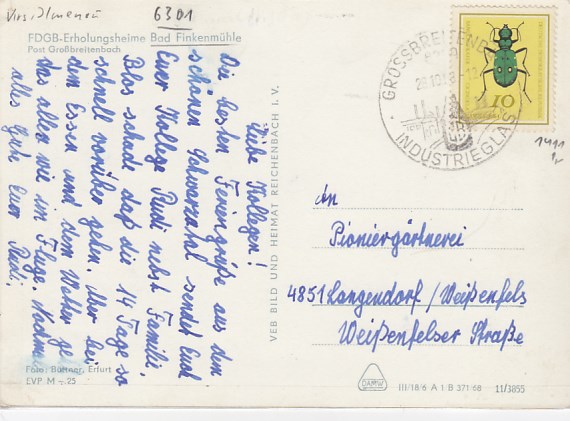 6301
FDGB-Erholungsheime Bad Finkenmühle
Post Großbreitenbach
Liebe Kollegen!
Die besten Feriengrüße aus dem
schönen Schwarzatal sendet Euch
Euer Kollege Rudi nebst Familie.
Blos schade daß die 14 Tage so
schnell vorüber gehn. Aber bei
dem Essen und dem Wetter geht
das alles wie im Fluge. Nochmals
alles Gute Euer Rudi.
Foto: Büttner, Erfurt
EVP M -.25
VEB BILD UND HEIMAT REICHENBACH I. V.
GROSSBREITENB
INDUSTRIEGLAS
10
1411
An
Pioniergärtnerei
4851 Langendorf / Weißenfels
Weißenfelser Straße
DAMW
III/18/6 A I B 371 68 11/3855